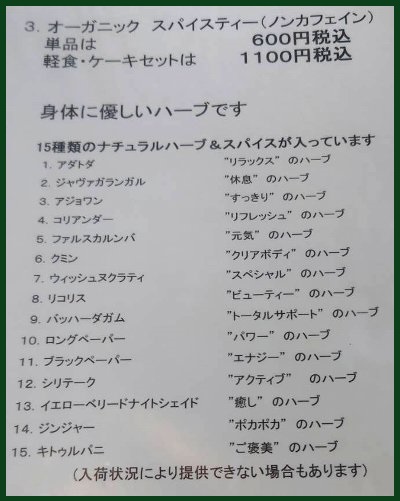 3. オーガニック スパイスティー(ノンカフェイン)
単品は 600円税込
軽食・ケーキセットは 1100円税込
身体に優しいハーブです
15種類のナチュラルハーブ&スパイスが入っています
1. アダトダ ”リラックス” のハーブ
2. ジャヴァガランガル ”休息” のハーブ
3. アジョワン ”すっきり” のハーブ
4. コリアンダー ”リフレッシュ” のハーブ
5. ファルスカルンバ ”元気” のハーブ
6. クミン ”クリアボディ” のハーブ
7. ウィッシュヌクラティ ”スペシャル” のハーブ
8. リコリス ”ビューティー” のハーブ
9. パッハーダガム ”トータルサポート” のハーブ
10. ロングペーパー ”パワー” のハーブ
11. ブラックペーパー ”エナジー” のハーブ
12. シリテーク ”アクティブ” のハーブ
13. イエローベリードナイトシェイド ”癒し” のハーブ
14. ジンジャー ”ポカポカ” のハーブ
15. キトゥルパニ ”ご褒美” のハーブ
(入荷状況により提供できない場合もあります)